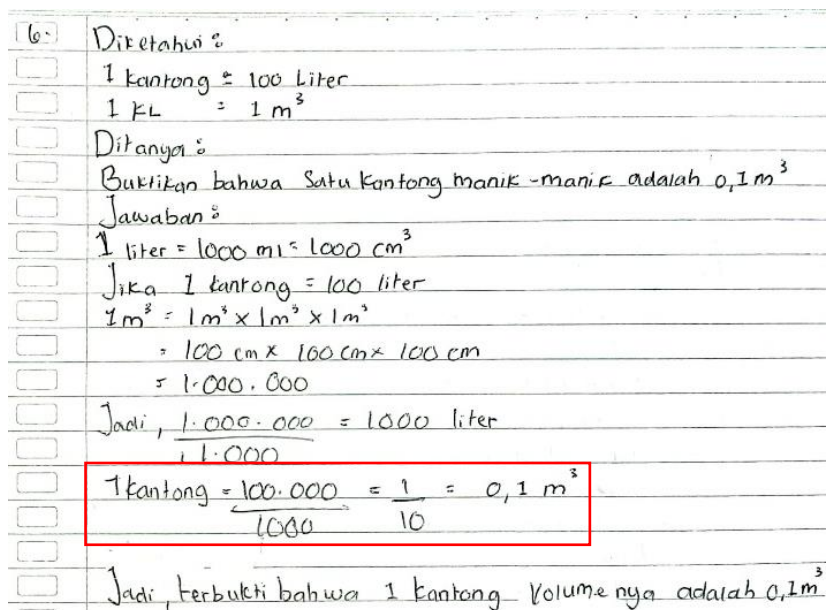 6.
Diketahui :
1 kantong = 100 Liter
1 KL = 1 m³
Ditanya :
Buktikan bahwa Satu kantong manik-manik adalah 0,1 m³
Jawaban :
1 liter = 1000 ml = 1000 cm³
Jika 1 kantong = 100 liter
1 m³ = 1 m³ x 1 m³ x 1 m³
= 100 cm x 100 cm x 100 cm
= 1.000.000
Jadi, 1.000.000 / 1.000 = 1000 liter
1 kantong = 100.000 / 1000 = 1 / 10 = 0,1 m³
Jadi, terbukti bahwa 1 kantong Volumenya adalah 0,1 m³